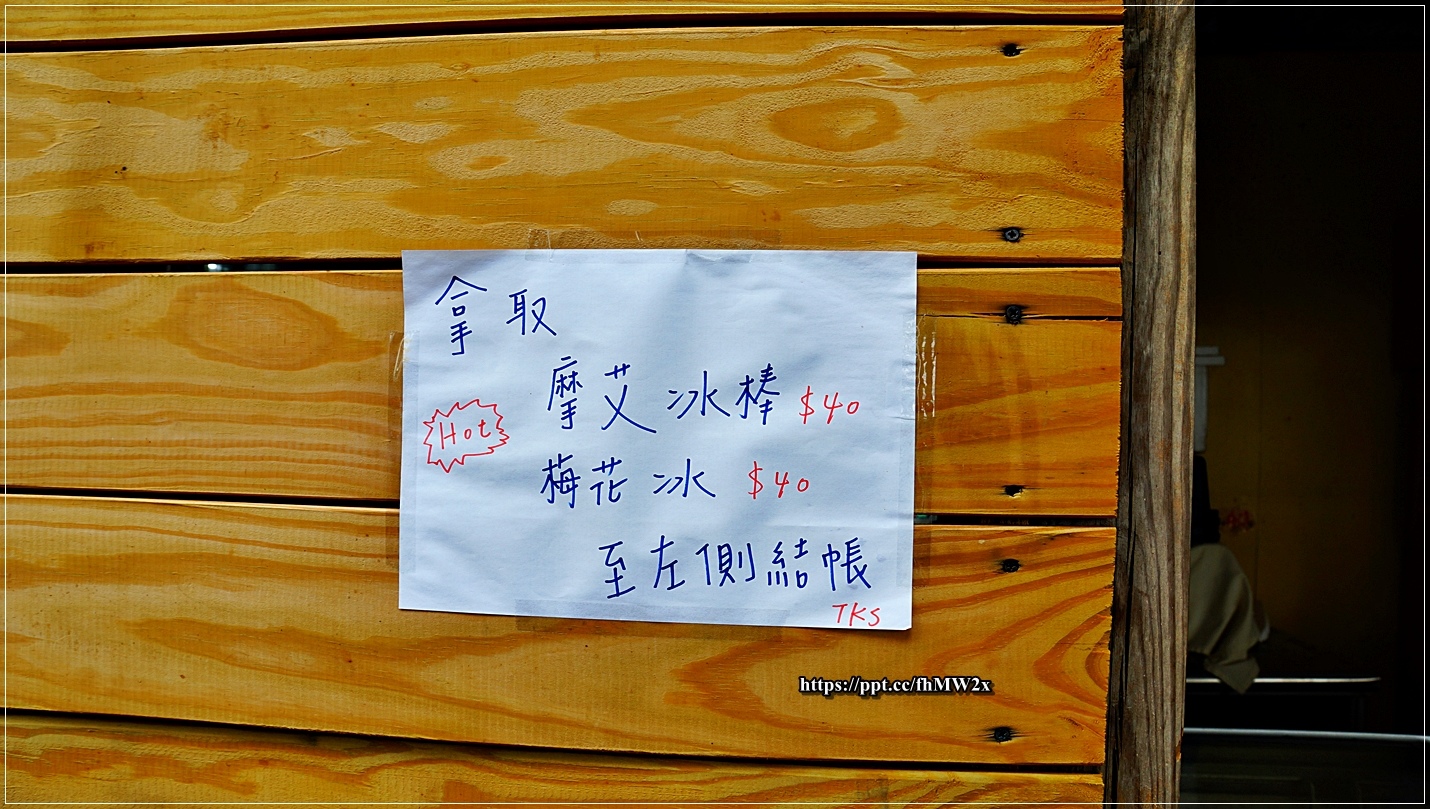 拿取
摩艾冰棒 $40
Hot
梅花冰 $40
至左側結帳
TKS
https://ppt.cc/fhMW2x